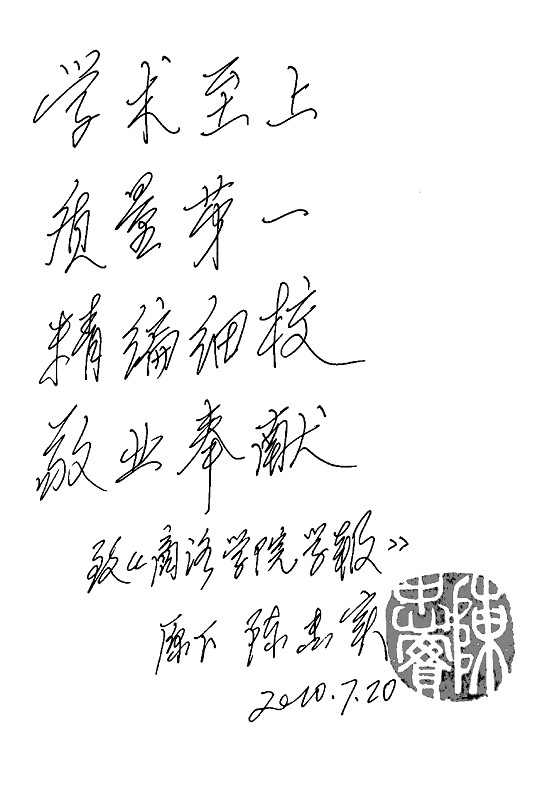 学术至上
质量第一
精编细校
敬业奉献
致《商洛学院学報》
原下 陈忠实
2010.7.20
陳忠